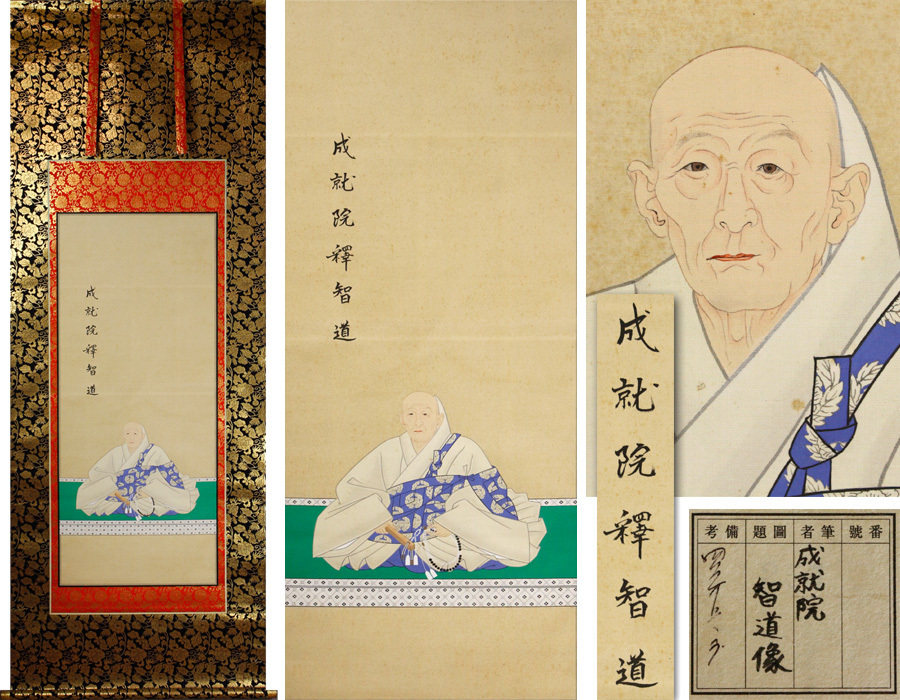 成就院釋智道
成就院釋智道
成就院釋智道
番號
筆者
圖題
備考
成就院
智道像